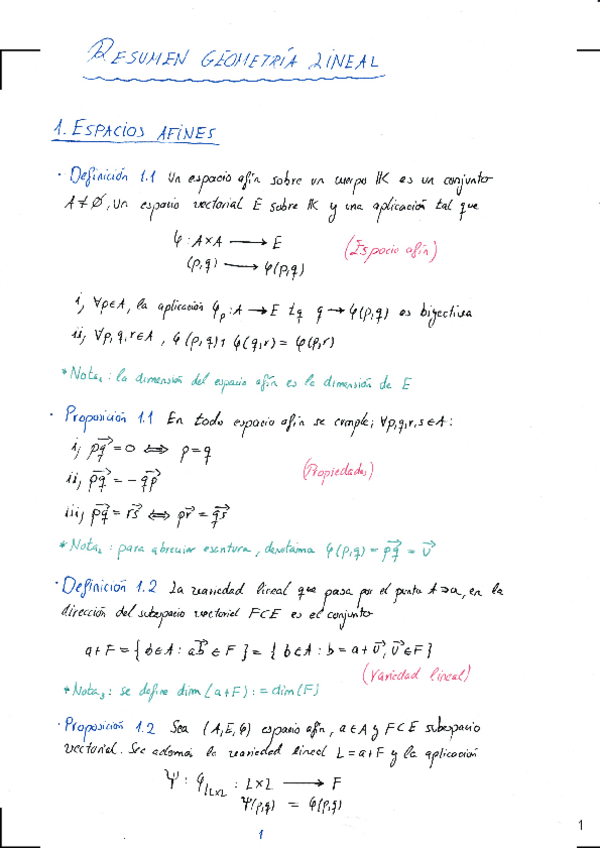 RESUMEN GEOMETRÍA LINEAL
1. ESPACIOS AFINES
· Definición 1.1 Un espacio afín sobre un cuerpo K es un conjunto
A ≠ ∅, un espacio vectorial E sobre K y una aplicación tal que
φ : A×A ⟶ E
(Espacio afín)
(p,q) ⟶ φ(p,q)
i) ∀p∈A, la aplicación φₚ : A → E tq q → φ(p,q) es biyectiva
ii) ∀p,q,r∈A, φ(p,q)+φ(q,r) = φ(p,r)
* Nota₁: la dimensión del espacio afín es la dimensión de E
· Proposición 1.1 En todo espacio afín se cumple; ∀p,q,r,s∈A:
i) p͞q⃗ = 0 ⟺ p = q
ii) p͞q⃗ = - q͞p⃗
(Propiedades)
iii) p͞q⃗ = r͞s⃗ ⟺ p͞r⃗ = q͞s⃗
* Nota₂: para abreviar escritura, denotamos φ(p,q) = p͞q⃗ = v⃗
· Definición 1.2 La variedad lineal que pasa por el punto A∋a, en la
dirección del subespacio vectorial F⊂E es el conjunto
a+F = { b∈A : a͞b⃗ ∈ F } = { b∈A : b = a + v⃗, v⃗∈F }
(Variedad lineal)
* Nota₃: se define dim(a+F) := dim(F)
· Proposición 1.2 Sea (A,E,φ) espacio afín, a∈A y F⊂E subespacio
vectorial. Sea además la variedad lineal L = a+F y la aplicación
Ψ : φ|L×L : L×L ⟶ F
Ψ(p,q) = φ(p,q)
1
1